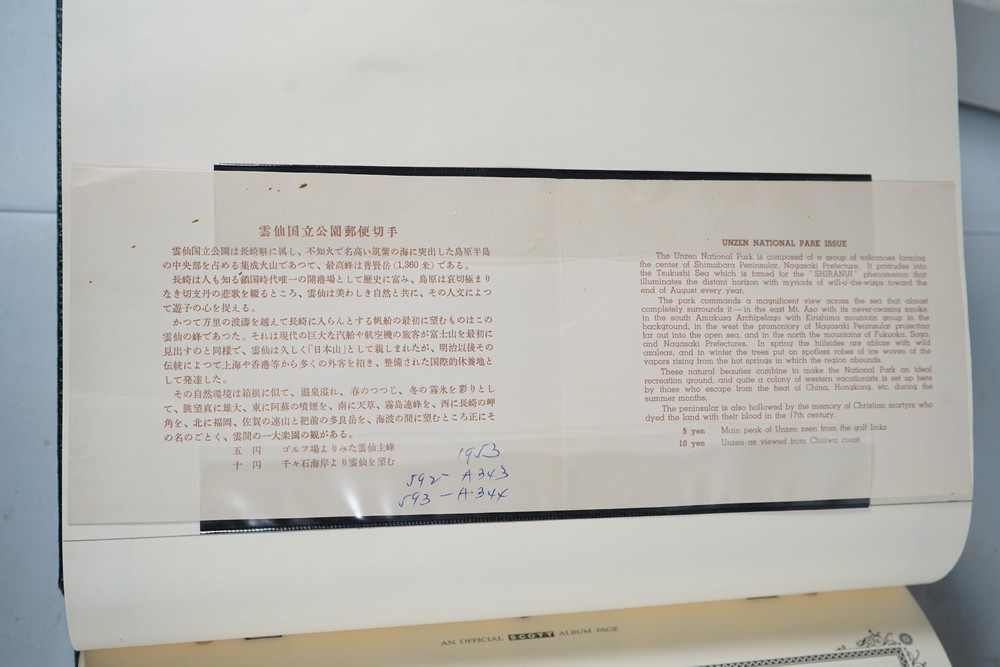 雲仙国立公園郵便切手
雲仙国立公園は長崎県に属し、不知火で名高い筑紫の海に突出した島原半島
の中央部を占める集成火山であつて、最高峰は普賢岳(1,360 米)である。
長崎は人も知る鎖国時代唯一の開港場として歴史に富み、島原は哀切極まり
なき切支丹の悲歌を綴るところ、雲仙は美わしき自然と共に、その人文によつ
て遊子の心を捉える。
かつて万里の波濤を越えて長崎に入らんとする帆船の最初に望むものはこの
雲仙の峰であつた。それは現代の巨大な汽船や航空機の旅客が富士山を最初に
見出すのと同様で、雲仙は久しく「日本山」として親しまれたが、明治以後その
伝統によつて上海や香港等から多くの外客を招き、整備された国際的休養地と
して発達した。
その自然環境は箱根に似て、温泉溢れ、春のつつじ、冬の霧氷を彩りとし
て、眺望真に雄大、東に阿蘇の噴煙を、南に天草、霧島連峰を、西に長崎の岬
角を、北に福岡、佐賀の連山と肥前の多良岳を、海波の間に望むところ正にそ
の名のごとく、雲間の一大楽園の観がある。
五 円 ゴルフ場よりみた雲仙主峰
十 円 千々石海岸より雲仙を望む
1953
592 - A343
593 - A·344
UNZEN NATIONAL PARK ISSUE
The Unzen National Park is composed of a group of volcanoes forming
the center of Shimabara Peninsular, Nagasaki Prefecture. It protrudes into
the Tsukushi Sea which is famed for the "SHIRANUI" phenomenon that
illuminates the distant horizon with myriads of will-o'-the-wisps toward the
end of August every year.
The park commands a magnificent view across the sea that almost
completely surrounds it — in the east Mt. Aso with its never-ceasing smoke,
in the south Amakusa Archipelago with Kirishima mountain group in the
background, in the west the promontory of Nagasaki Peninsular projecting
far out into the open sea, and in the north the mountains of Fukuoka, Saga,
and Nagasaki Prefectures. In spring the hillsides are ablaze with wild
azaleas, and in winter the trees put on spotless robes of ice woven of the
vapors rising from the hot springs in which the region abounds.
These natural beauties combine to make the National Park an ideal
recreation ground, and quite a colony of western vacationists is set up here
by those who escape from the heat of China, Hongkong, etc. during the
summer months.
The peninsular is also hollowed by the memory of Christian martyrs who
dyed the land with their blood in the 17th century.
5 yen Main peak of Unzen seen from the golf links
10 yen Unzen as viewed from Chijiwa coast
AN OFFICIAL SCOTT ALBUM PAGE